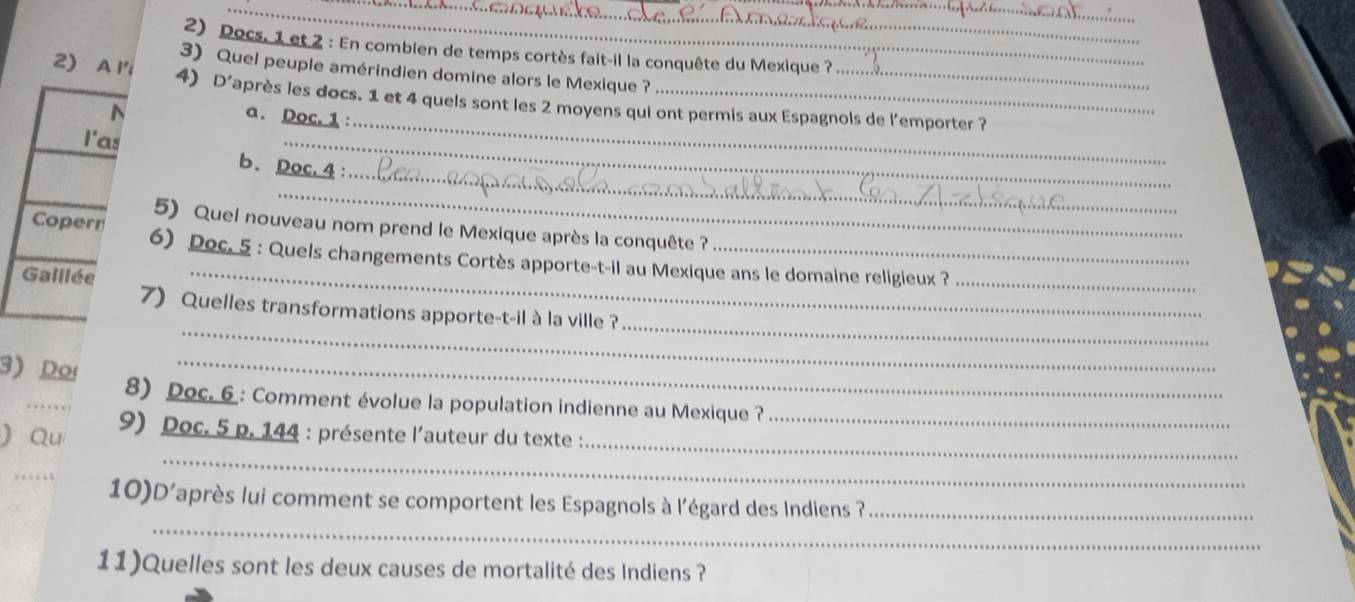 la conquête de l'Amérique qui sont
2) Docs. 1 et 2 : En combien de temps cortès fait-il la conquête du Mexique ?
3) Quel peuple amérindien domine alors le Mexique ?
4) D'après les docs. 1 et 4 quels sont les 2 moyens qui ont permis aux Espagnols de l'emporter ?
a. Doc. 1 :
b. Doc. 4 : Les espagnols combattent les Aztèque
5) Quel nouveau nom prend le Mexique après la conquête ?
6) Doc. 5 : Quels changements Cortès apporte-t-il au Mexique ans le domaine religieux ?
7) Quelles transformations apporte-t-il à la ville ?
8) Doc. 6 : Comment évolue la population indienne au Mexique ?
9) Doc. 5 p. 144 : présente l'auteur du texte :
10)D'après lui comment se comportent les Espagnols à l'égard des Indiens ?
11)Quelles sont les deux causes de mortalité des Indiens ?
2) A l'
N
l'as
Copern
Galilée
3) Do
) Qu